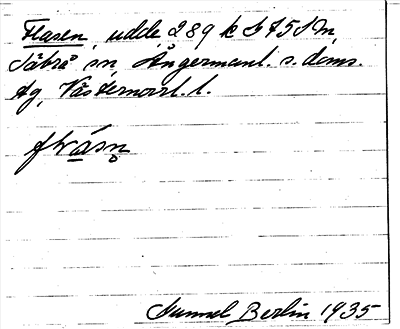 Flasen, udde 289 k S 75 S M,
Säbrå sn, Ångermanl. s. doms.
tg, Västernorrl. l.
flåsn̥
Gunnel Berlin 1935